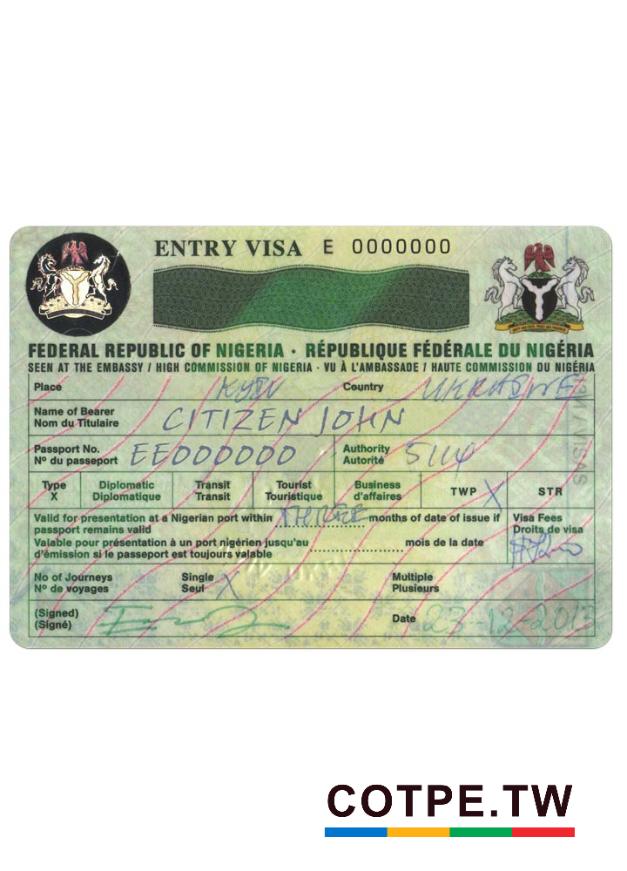 ENTRY VISA E 0000000
FEDERAL REPUBLIC OF NIGERIA · RÉPUBLIQUE FÉDÉRALE DU NIGÉRIA
SEEN AT THE EMBASSY / HIGH COMMISSION OF NIGERIA · VU À L'AMBASSADE / HAUTE COMMISSION DU NIGÉRIA
Place KYIV Country UKRAINE
Name of Bearer
Nom du Titulaire CITIZEN JOHN
Passport No.
Nº du passeport EE000000 Authority
Autorité 5114
Type
X Diplomatic
Diplomatique Transit
Transit Tourist
Touristique Business
d'affaires TWP X STR
Valid for presentation at a Nigerian port within THREE months of date of issue if
passport remains valid
Valable pour présentation à un port nigérien jusqu'au .................... mois de la date
d'émission si le passeport est toujours valable
Visa Fees
Droits de visa
No of Journeys
Nº de voyages Single
Seul X Multiple
Plusieurs
(Signed)
(Signé) Date 23-12-2013
VISAS
COTPE.TW